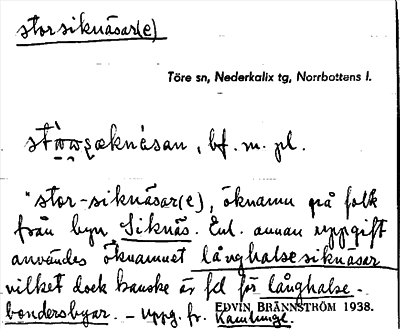 storsiknäsar(e)
Töre sn, Nederkalix tg, Norrbottens l.
bf. m. pl.
"stor-siknäsar(e), öknamn på folk
från byn Siknäs. Enl. annan uppgift
användes öknamnet långhalsesiknäsar
vilket dock kanske är fel för långhalse-
bondersbyar. – Uppg. fr. Kamlunge.
EDVIN BRÄNNSTRÖM 1938.